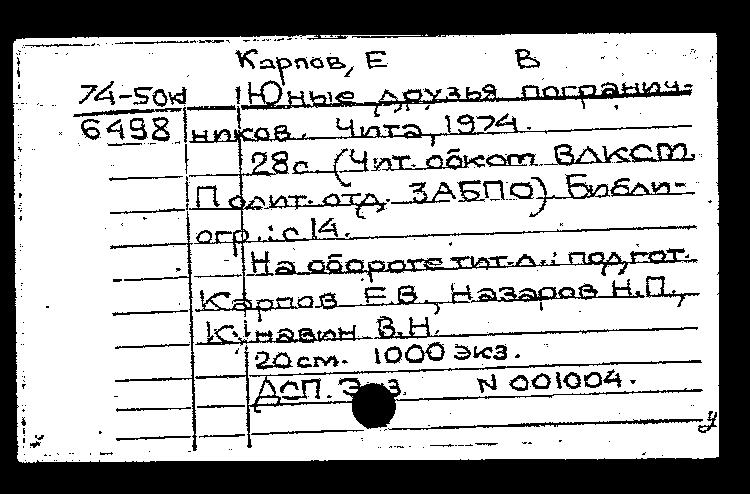 Карпов, Е В
74-50к Юные друзья погранич-
6498 ников. Чита, 1974.
28с (Чит. обком ВЛКСМ.
Полит. отд. ЗАБПО) Библи-
огр.: с 14.
На обороте тит. л.: подгот.
Карпов Е.В., Назаров Н.П.,
Кунавин В.Н.
20 см. 1000 экз.
ДСП. N 001004.
у